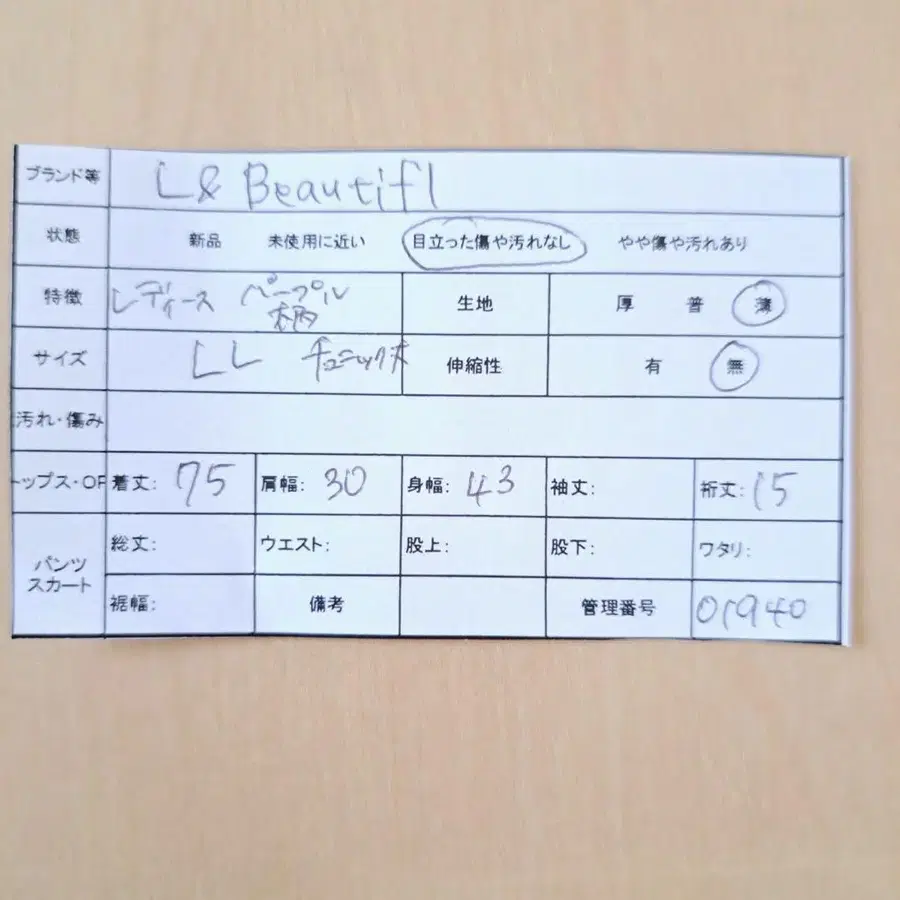 ブランド等 L& Beautifl
状態 新品 未使用に近い 目立った傷や汚れなし やや傷や汚れあり
特徴 レディース パープル 生地 厚 普 薄
柄
サイズ LL チュニック丈 伸縮性 有 無
汚れ・傷み
ップス・OP 着丈: 75 肩幅: 30 身幅: 43 袖丈: 裄丈: 15
パンツ 総丈: ウエスト: 股上: 股下: ワタリ:
スカート
裾幅: 備考 管理番号 01940